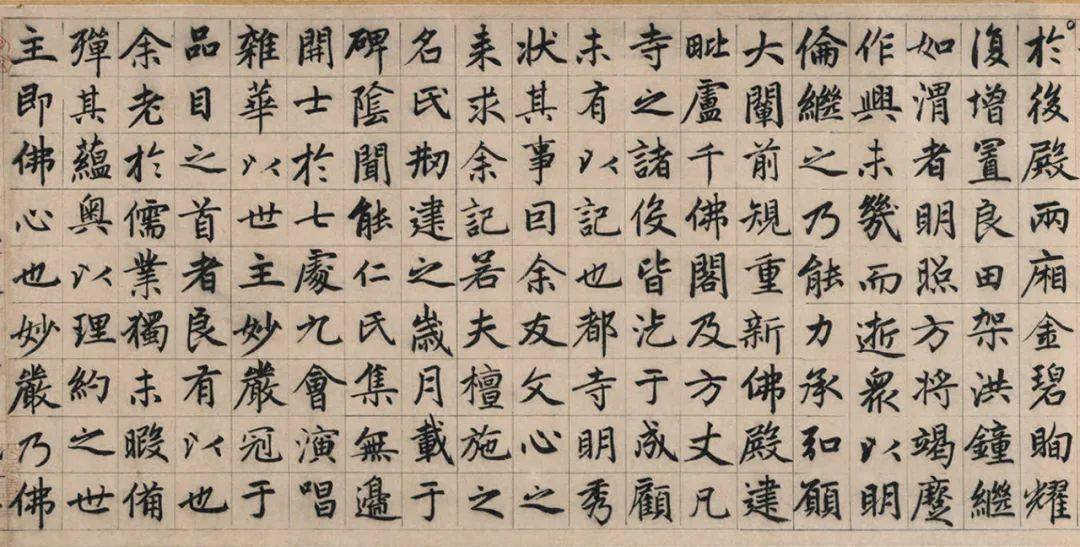 於後殿兩廂金碧眴耀
復增置良田架洪鐘繼
如渭者明照方將竭麼
作興未幾而逝衆以明
倫繼之乃能力承弘願
大闡前規重新佛殿建
毗盧千佛閣及方丈凡
寺之諸役皆汔于成顧
未有以記也都寺明秀
状其事回余友文心之
来求余記若夫檀施之
名氏剏建之歲月載于
碑陰聞能仁氏集無邊
開士於七處九會演唱
雜華以世主妙嚴冠于
品目之首者良有以也
余老於儒業獨未暇備
殫其蘊奥以理約之世
主即佛心也妙嚴乃佛